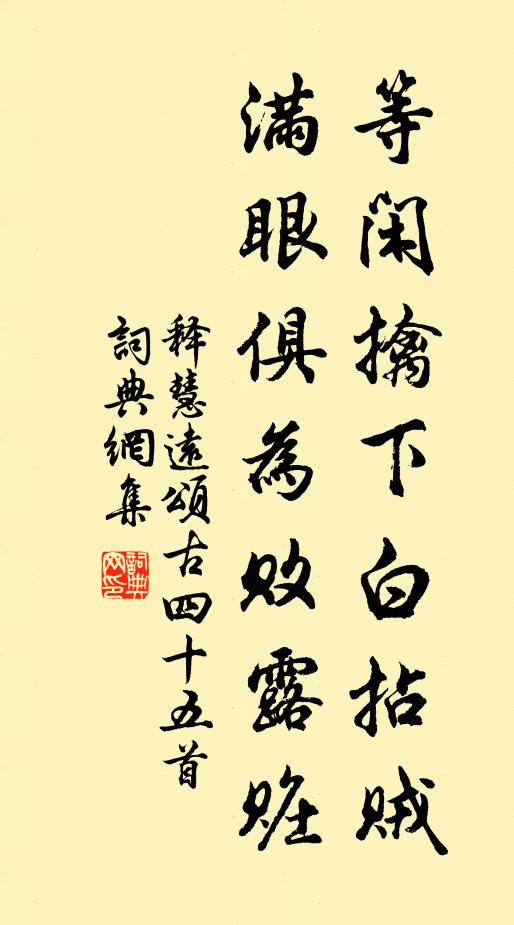 等闲擒下白拈贼
滿眼俱為敗露賍
释慧遠頌古四十五首
詞典網集
詞典网印